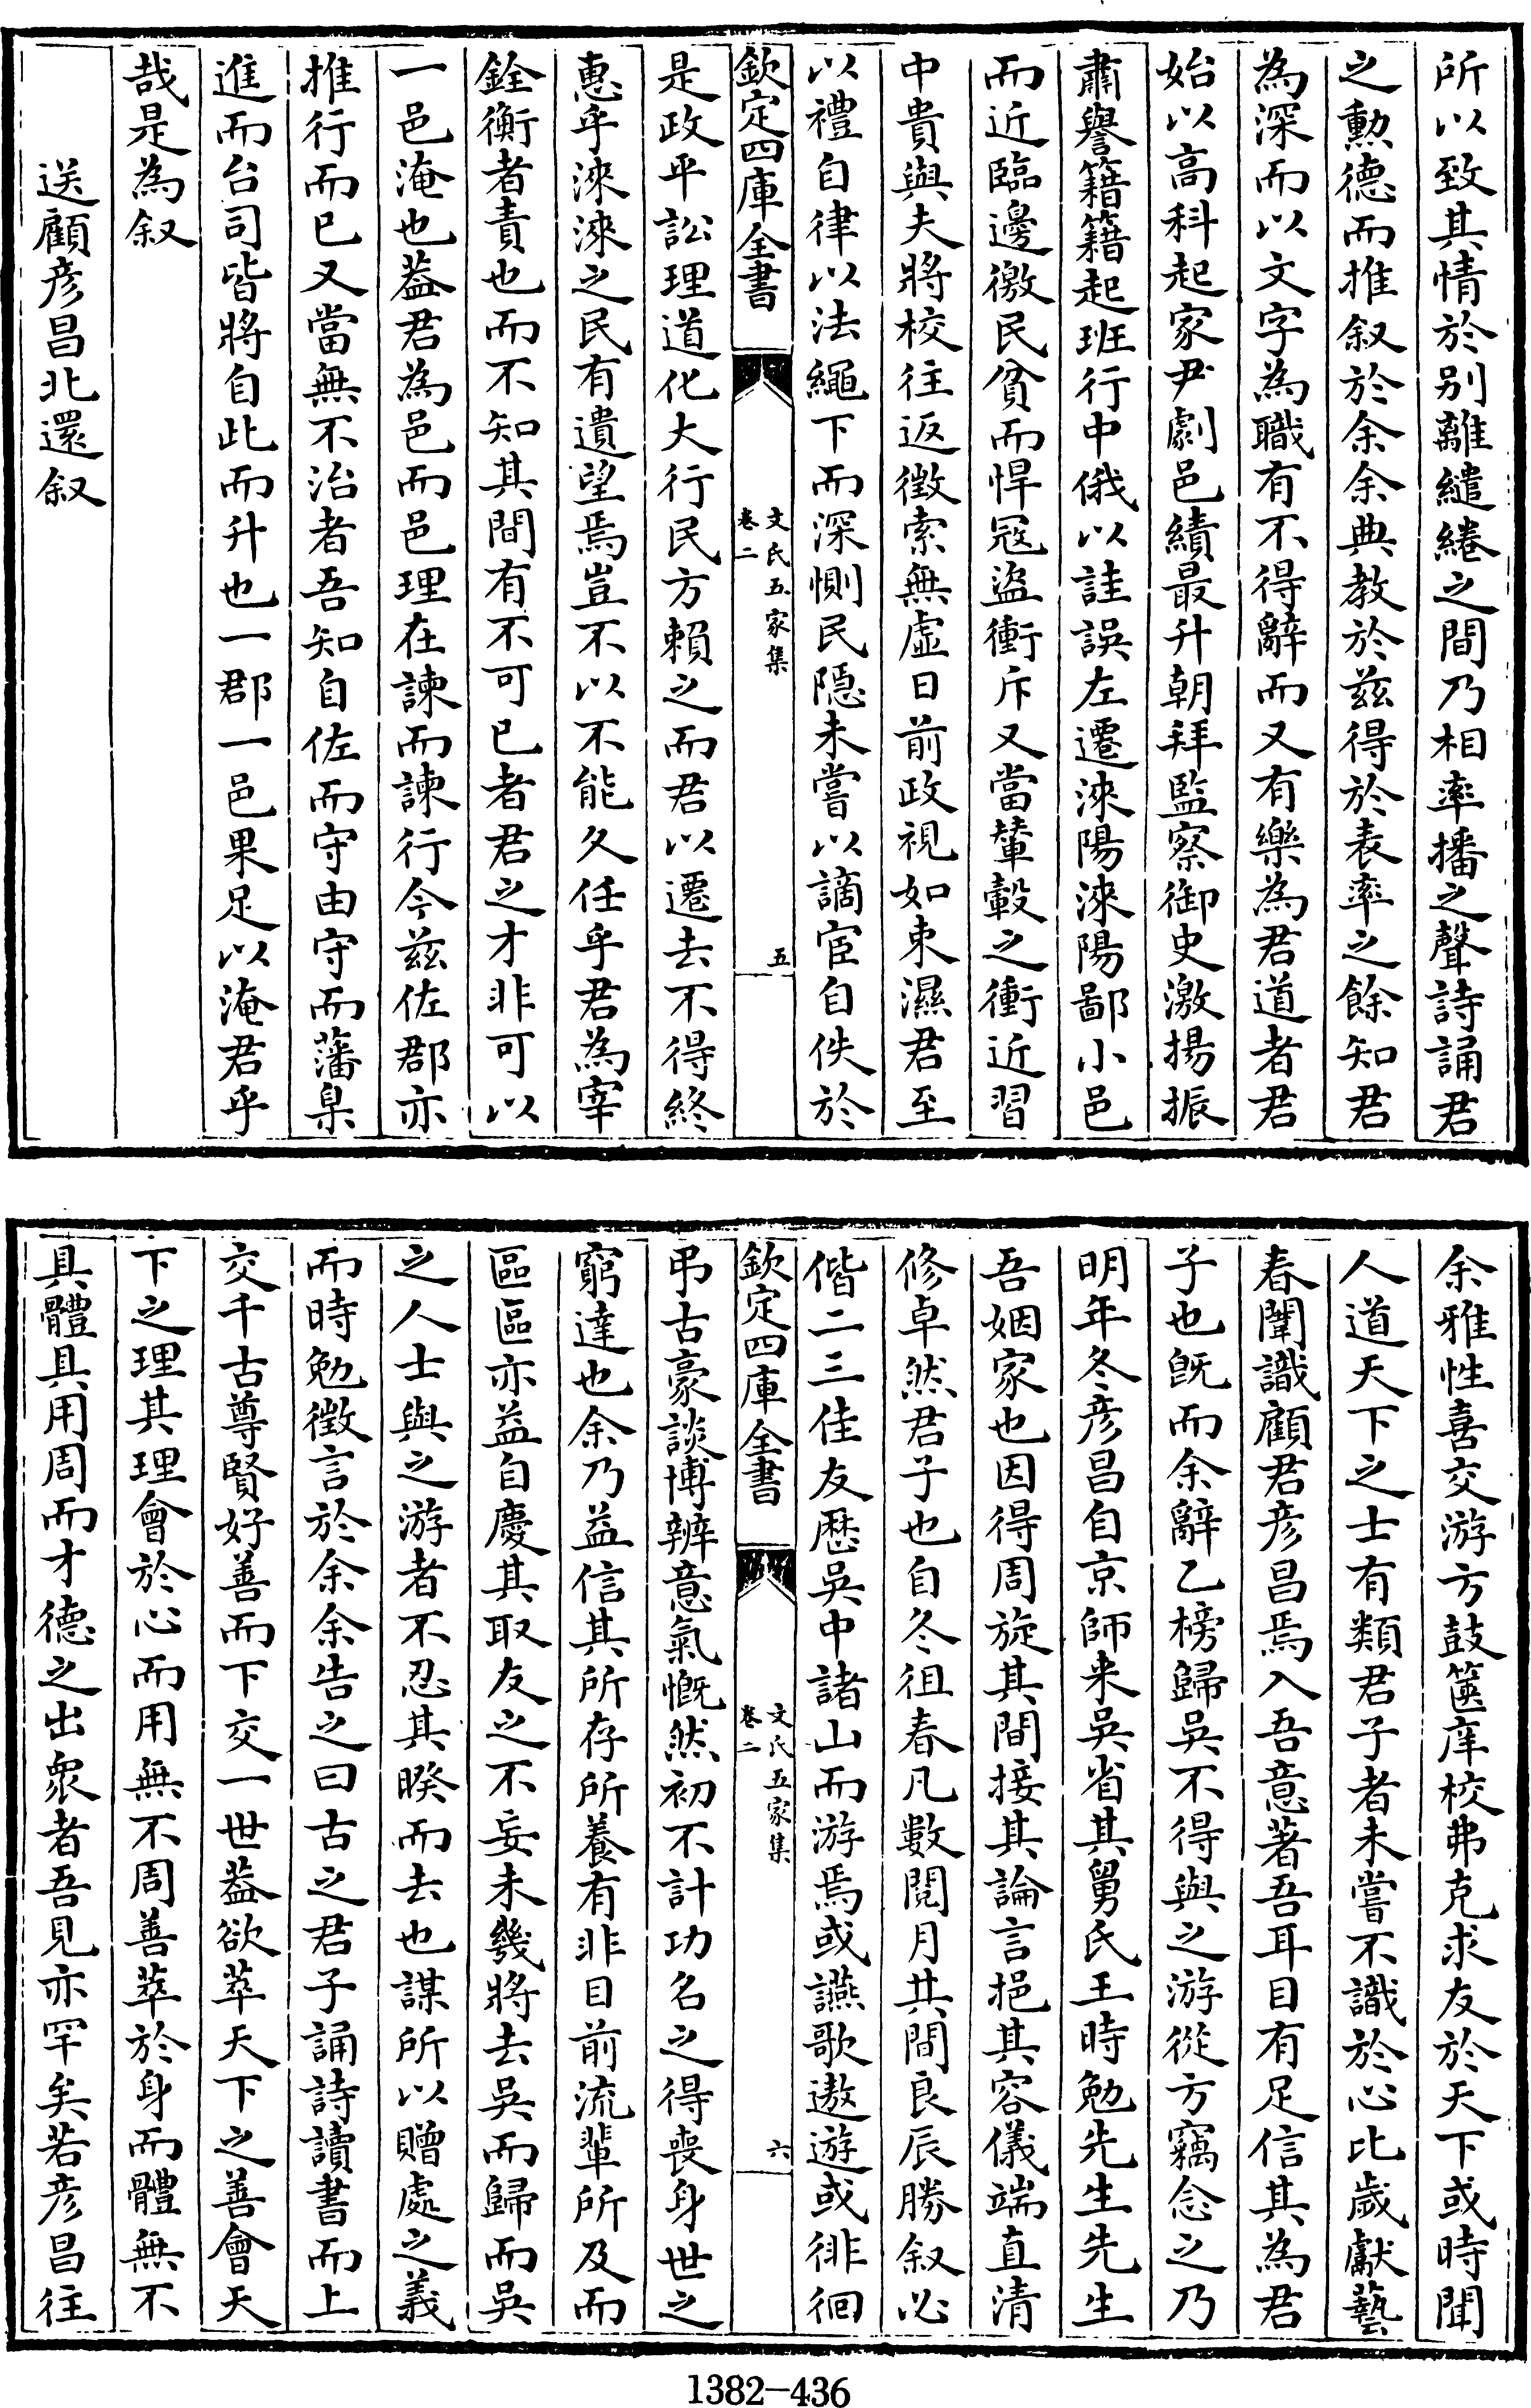 所以致其情於別離繾綣之間乃相率播之聲詩誦君
之勲德而推叙於余余典教於兹得於表率之餘知君
為深而以文字為職有不得辭而又有樂為君道者君
始以髙科起家尹劇邑績最升朝拜監察御史激揚振
肅譽籍籍起班行中俄以詿誤左遷淶陽淶陽鄙小邑
而近臨邊徼民貧而悍冦盗衝斥又當輦轂之衝近習
中貴與夫將校往返徴索無虚日前政視如束濕君至
以禮自律以法繩下而深惻民隱未嘗以謫宦自佚於
欽定四庫全書
文氏五家集
卷二
五
是政平訟理道化大行民方賴之而君以遷去不得終
惠乎淶淶之民有遺望焉豈不以不能久任乎君為宰
銓衡者責也而不知其間有不可已者君之才非可以
一邑淹也葢君為邑而邑理在諫而諫行今兹佐郡亦
推行而已又當無不治者吾知自佐而守由守而藩臬
進而台司皆將自此而升也一郡一邑果足以淹君乎
哉是為叙
送顧彦昌北還叙
余雅性喜交游方鼓篋庠校弗克求友於天下或時聞
人道天下之士有類君子者未嘗不識於心比歲獻藝
春闈識顧君彦昌焉入吾意著吾耳目有足信其為君
子也既而余辭乙榜歸吳不得與之游從方竊念之乃
明年冬彦昌自京師来吳省其舅氏王時勉先生先生
吾姻家也因得周旋其間接其論言挹其容儀端直清
修卓然君子也自冬徂春凡數閱月其間良辰勝叙必
偕二三佳友歴吳中諸山而游焉或讌歌遨遊或徘徊
欽定四庫全書
文氏五家集
卷二
六
弔古豪談博辨意氣慨然初不計功名之得喪身世之
窮達也余乃益信其所存所養有非目前流輩所及而
區區亦益自慶其取友之不妄未幾將去吳而歸而吳
之人士與之游者不忍其暌而去也謀所以贈處之義
而時勉徴言於余余告之曰古之君子誦詩讀書而上
交千古尊賢好善而下交一世葢欲萃天下之善會天
下之理其理會於心而用無不周善萃於身而體無不
具體具用周而才德之出衆者吾見亦罕矣若彦昌往
1382-436